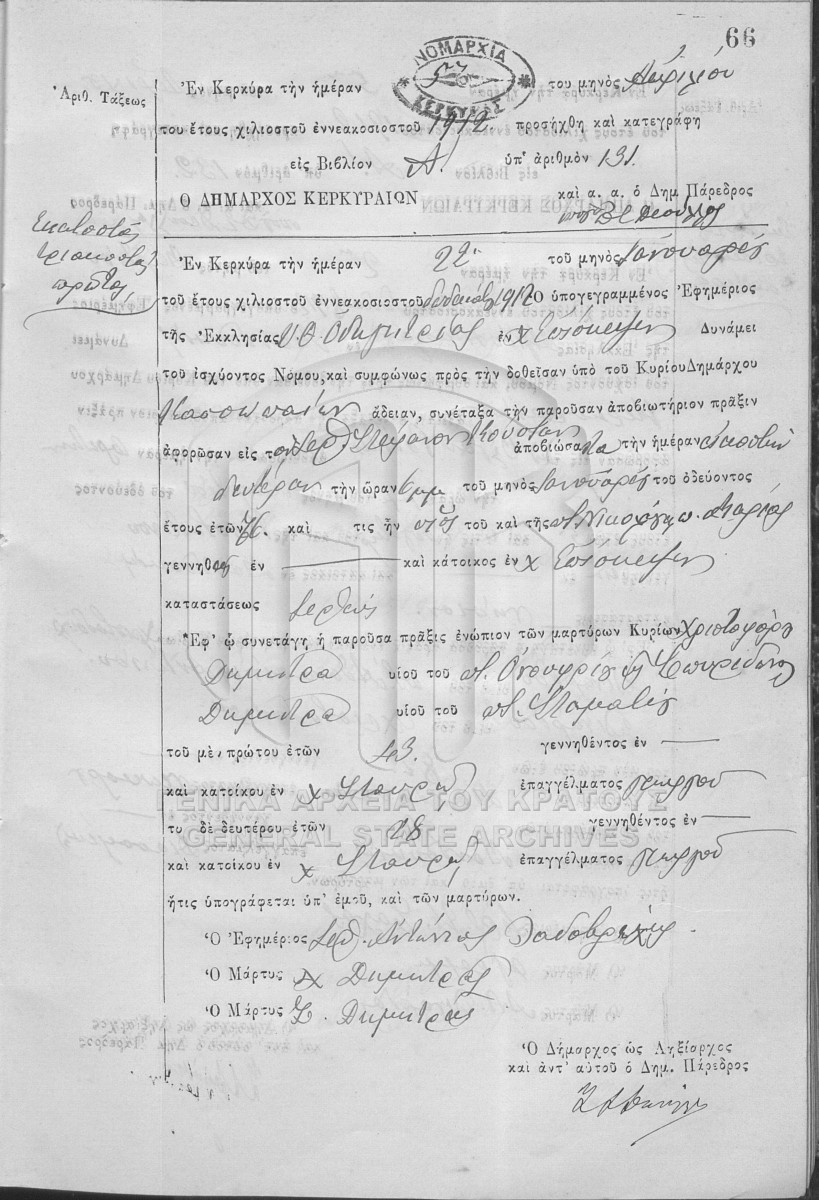 66
ΝΟΜΑΡΧΙΑ
ΚΕΡΚΥΡΑΣ
Ἀριθ. Τάξεως
Ἐν Κερκύρᾳ τὴν ἡμέραν του μηνὸς Ἀπριλίου
του ἔτους χιλιοστοῦ ἐννεακοσιοστοῦ 1912. προσήχθη καὶ κατεγράφη
εἰς Βιβλίον Α! ὑπ' ἀριθμὸν 131.
Ο ΔΗΜΑΡΧΟΣ ΚΕΡΚΥΡΑΙΩΝ καὶ α. α. ὁ Δημ Πάρεδρος
Ἑκατοστὸς
τριακοστὸς
πρῶτος
Ἐν Κερκύρᾳ τὴν ἡμέραν 22 τοῦ μηνὸς Ἰανουαρίου
τοῦ ἔτους χιλιοστοῦ ἐννεακοσιοστοῦ δωδεκάτου 1912 Ὁ ὑπογεγραμμένος Ἐφημέριος
τῆς Ἐκκλησίας Υ. Θ. Ὁδηγητρίας ἐν χ Ἐπίσκεψιν Δυνάμει
τοῦ ἰσχύοντος Νόμου, καὶ συμφώνως πρὸς τὴν δοθεῖσαν ὑπὸ τοῦ Κυρίου Δημάρχου
Κασσωπαίων ἄδειαν, συνέταξα τὴν παροῦσαν ἀποβιωτήριον πρᾶξιν
ἀφορῶσαν εἰς τον Στέφανον ἀποβιώσαντα τὴν ἡμέραν εἰκοστὴν
δευτέραν τὴν ὥραν 6 μμ τοῦ μηνὸς Ἰανουαρίου τοῦ ὁδεύοντος
ἔτους ἐτῶν 76. καὶ τις ἦν υἱὸς τοῦ καὶ τῆς π. Νικολάου π. Μαρίας
γεννηθεὶς ἐν — καὶ κάτοικος ἐν χ Ἐπίσκεψιν
καταστάσεως
Ἐφ' ᾧ συνετάγη ἡ παροῦσα πρᾶξις ἐνώπιον τῶν μαρτύρων Κυρίων Χριστοφόρου
Δημητρᾶ υἱοῦ τοῦ π. Ὀνουφρίου ἢ Σπυρίδωνος
Δημητρᾶ υἱοῦ τοῦ π. Σταματίου
τοῦ μὲν πρώτου ἐτῶν 43. γεννηθέντος ἐν —
καὶ κατοίκου ἐν χ Σταυροῦ ἐπαγγέλματος γεωργοῦ
το δὲ δευτέρου ἐτῶν 28 γεννηθέντος ἐν —
καὶ κατοίκου ἐν χ Σταυροῦ ἐπαγγέλματος γεωργοῦ
ΓΕΝΙΚΑ ΑΡΧΕΙΑ ΤΟΥ ΚΡΑΤΟΥΣ
GENERAL STATE ARCHIVES
ἥτις ὑπογράφεται ὑπ' ἐμοῦ, καὶ τῶν μαρτύρων.
Ὁ Ἐφημέριος Ἀντώνιος
Ὁ Μάρτυς Χ Δημητρᾶς
Ὁ Μάρτυς Σ. Δημητρᾶς
Ὁ Δήμαρχος ὡς Ληξίαρχος
καὶ ἀντ' αὐτοῦ ὁ Δημ. Πάρεδρος